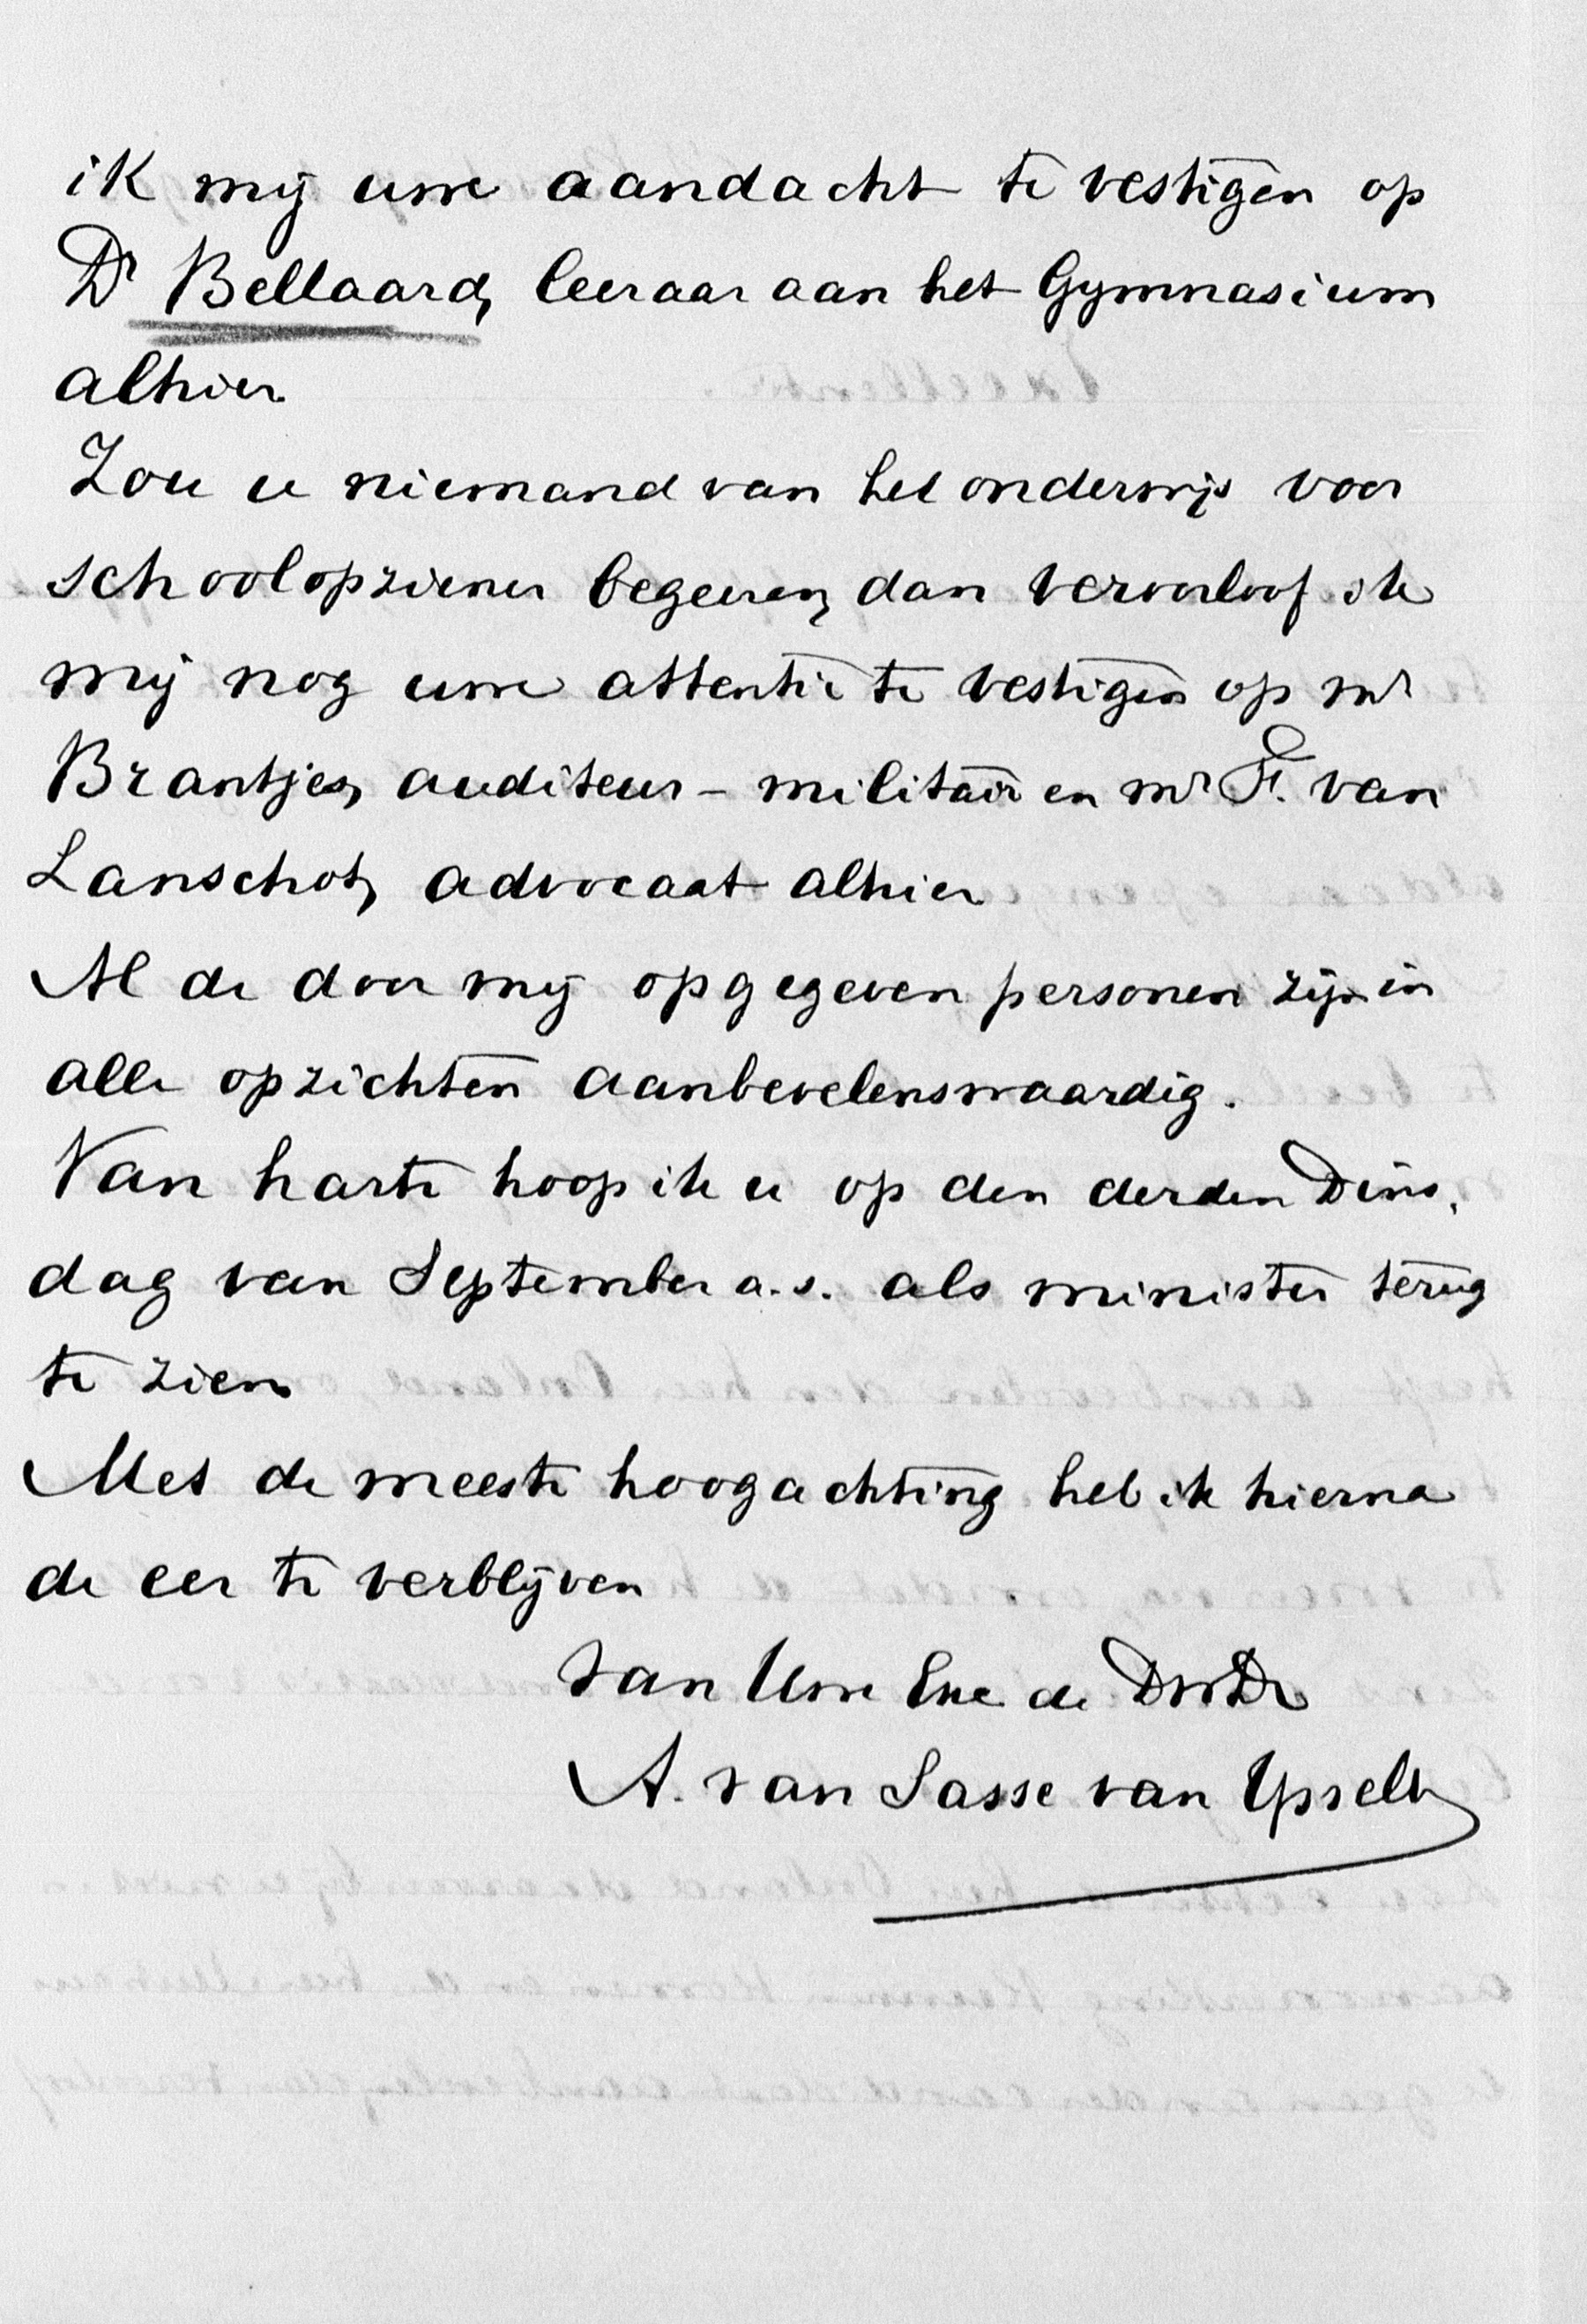 ik mij uwe aandacht te vestigen op
Dr Bellaard, leeraar aan het Gymnasium
alhier.
Zou u niemand van het onderwijs voor
schoolopziener begeeren, dan veroorloof ik
mij nog uwe attentie te vestigen op mr
Brantjes, auditeur-militair en mr F. van
Lanschot, advocaat alhier.
Al de door mij opgegeven personen zijn in
alle opzichten aanbevelenswaardig.
Van harte hoop ik u op den derden Dins-
dag van September a.s. als minister terug
te zien.
Met de meeste hoogachting heb ik hierna
de eer te verblijven
van Uwe Exc de DwDr
A. van Sasse van Ysselt